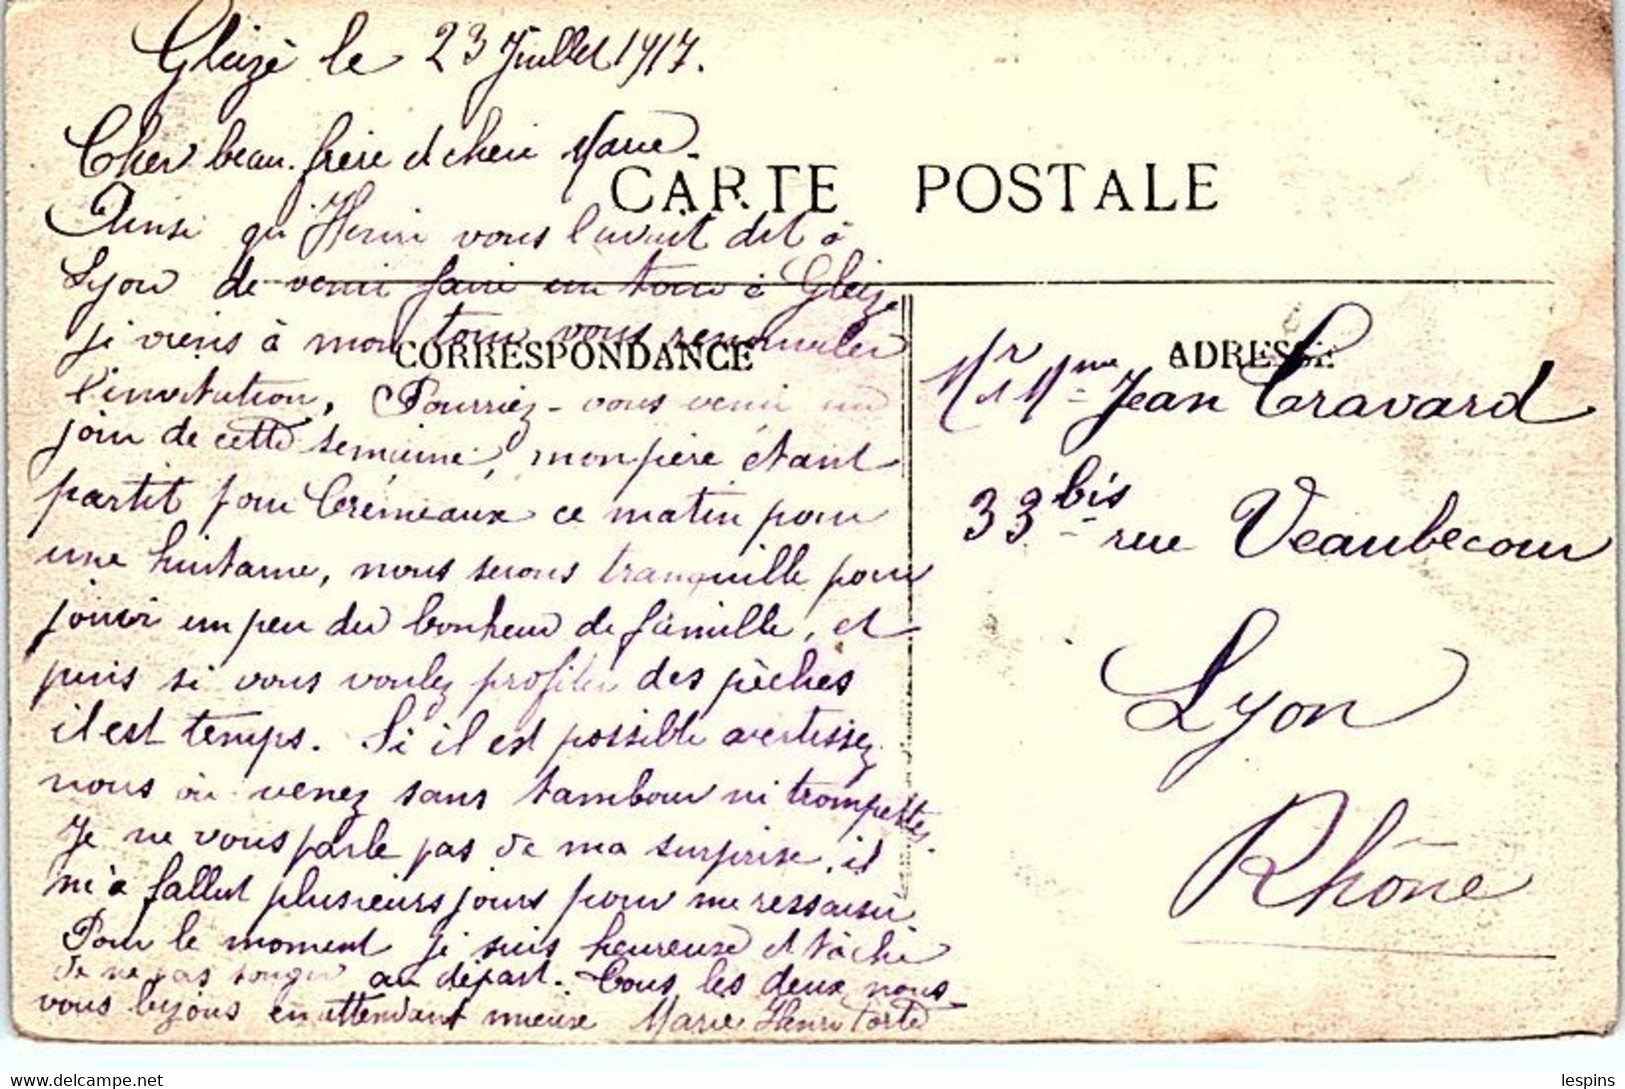 Gleizé le 23 Juillet 1917.
Cher beau-frère et chère Marie.
CARTE POSTALE
Ainsi qu'Henri vous l'avait dit à
Lyon de venir faire un tour à Gleizé
je viens à mon tour vous renouveler
l'invitation. Pourriez-vous venir un
jour de cette semaine, mon père étant
partit pour Crémeaux ce matin pour
une huitaine, nous serons tranquille pour
jouir un peu du bonheur de famille, et
puis si vous voulez profiter des pêches
il est temps. Si il est possible avertissez
nous ou venez sans tambour ni trompettes.
Je ne vous parle pas de ma surprise, il
m'a fallut plusieurs jours pour me ressaisir
Pour le moment je suis heureuse et tâche
de ne pas songer au départ. Tous les deux nous
vous bizons en attendant mieux Marie Henri
CORRESPONDANCE
ADRESSE
Mr et Mme Jean Cravard
33 bis rue Veaubecour
Lyon
Rhône
lespins
www.delcampe.net